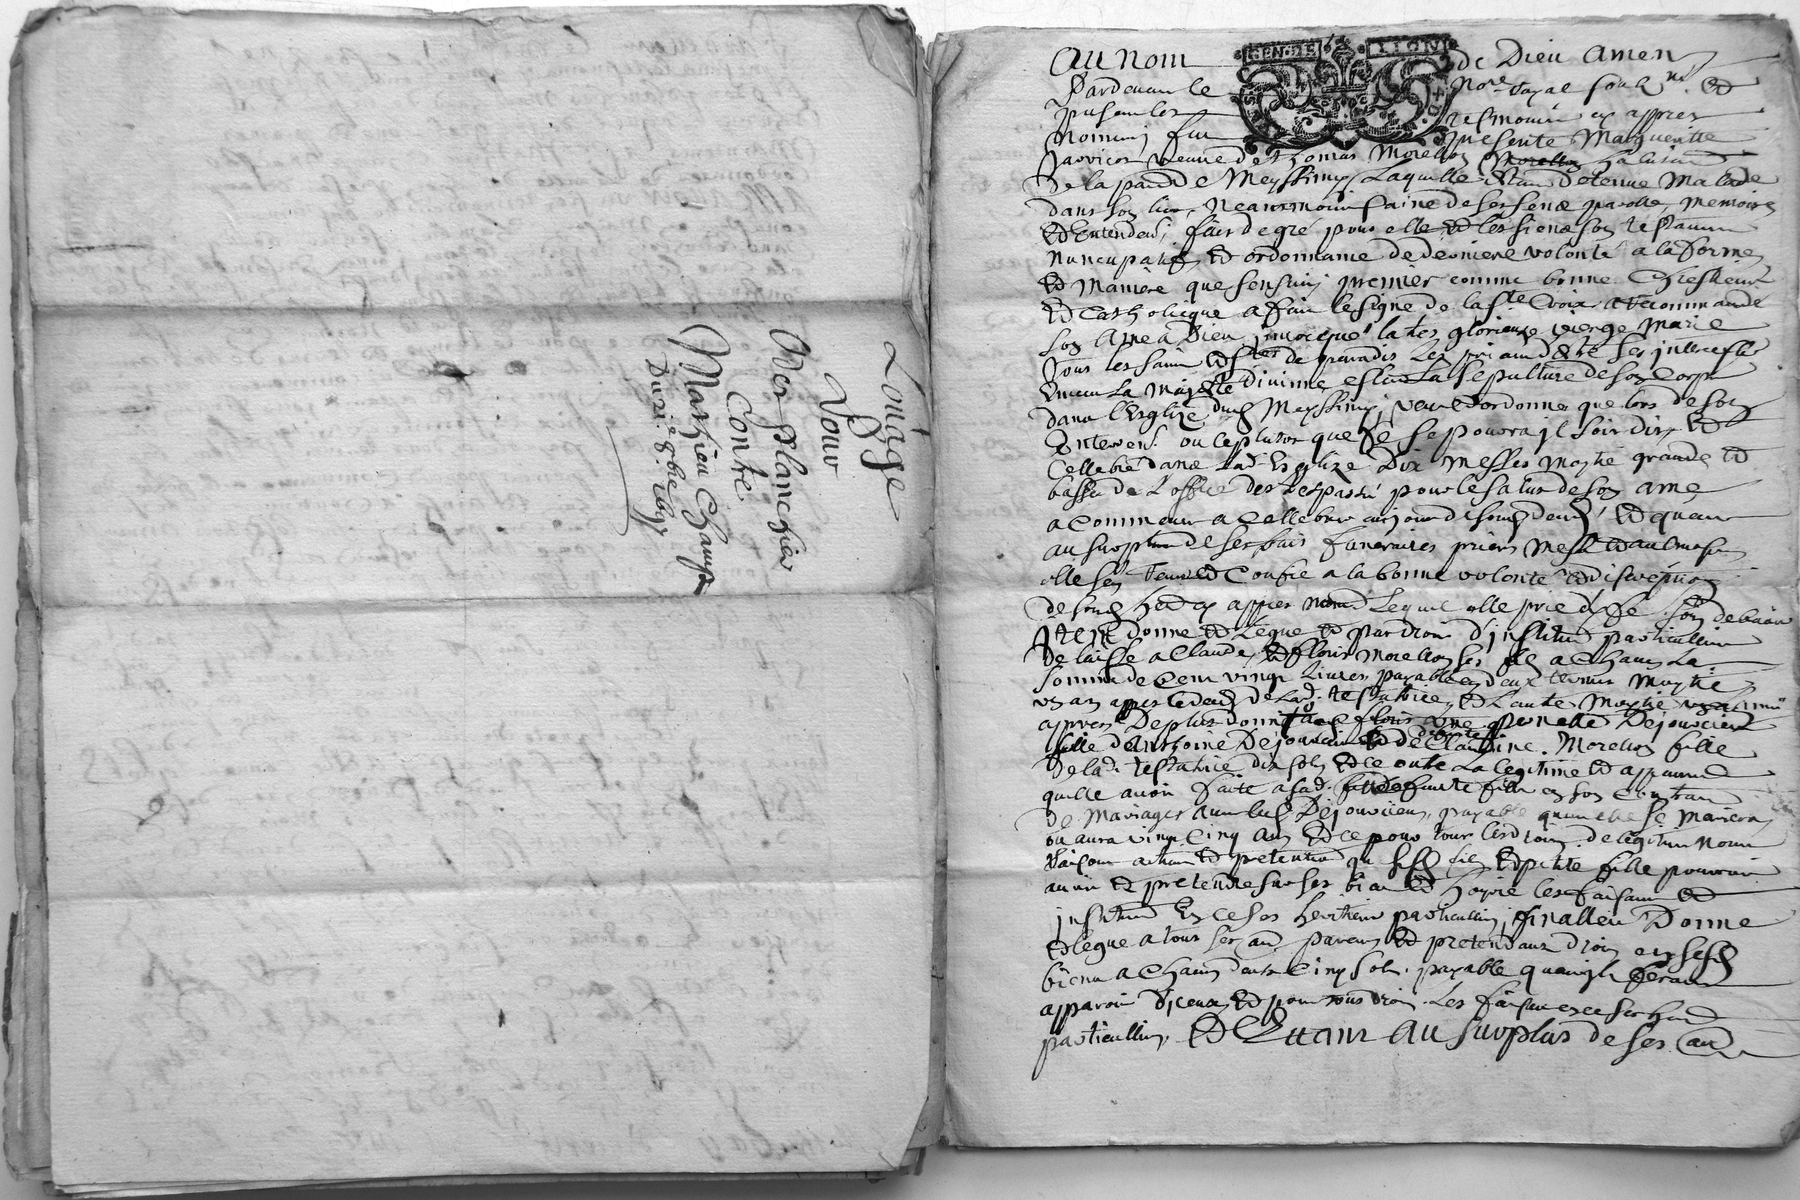 Louage
Pour
Contre
Mathieu Champ
Du 21e 8bre
GEN·DE LION
Au nom de Dieu Amen
Pardevant le Nore Royal soubz né. Et
presents les tesmoins cy appres
nommés fut presente Margueritte
veuve de Thomas Morellon Morellon
de la parroisse de Meyssimy Laquelle estant detenue malade
dans son lict, neantmoins saine de ses sens parolle memoire
Et Entendemt, fait de gré pour elle Et les siens son testament
nuncupatif, Et ordonnance de derniere volonté a la forme
Et Maniere que sensuit premier comme bonne Chrestienne
Et Catholicque a fait le signe de la Ste Croix a recommandé
son Ame a Dieu invocqué la tres glorieuse vierge Marie
Tous les saints Et stes de paradis Les priant estre ses intercess
Envers La Majesté divinne eslisant La sepulture de son Corps
dans l'Esglize dud Meyssimy, veut Et ordonne que lors de son
Enterremt. ou le plustot que fe se pourra jl soit dit Et
Cellebré dans lad. Esglize Dix Messes moytié grande Et
basse de L'office des trespassés pour le salut de son ame
a Commencer a Cellebrer au jour de son deced, Et quant
au surplus de ses frais funeraires prieres messe Et aulmosnes
elle sen remet Et Confie a la bonne volonté Et discretion
de sond. herit. cy appres nommé Lequel elle prie
Item donne Et Legue Et par droit d'institution particulliere
delaisse a Claude, Et Floris Morellon ses fils a Chacun La
somme de Cent vingt Livres payable en deux termes Moytié
un an appres le deced de Lad. testatrice, Et L'autre Moytié un an
appres. De plus donne Dejouvcient
fille d'Anthoine Dejouvcient Et de Claudine Morellon fille
de lad. testatrice dix sols Et ce outre La legitime Et appanage
quelle avoit faite a sad. deffunte fille en son Contrat
de Mariage avec led Dejouvcient, payable quand elle se mariera
ou aura vingt Cinq ans Et ce pour tous les droits de legitime nom
raison action Et pretention que sesd. fils Et petite fille pourroient
avoir Et pretendre sur ses biens Et hoyrie les faisant Et
instituant En ce ses heritiers particulliers, finallement Donne
Et legue a tous ses autres parens Et pretendans droit en sesd
biens a Chacun d'eux Cinq sols. payable quand ils feront
apparoir d'iceux, Et pour tous droits. Les faisant en ce ses herit
particulliers, Et Quant au surplus de ses autres